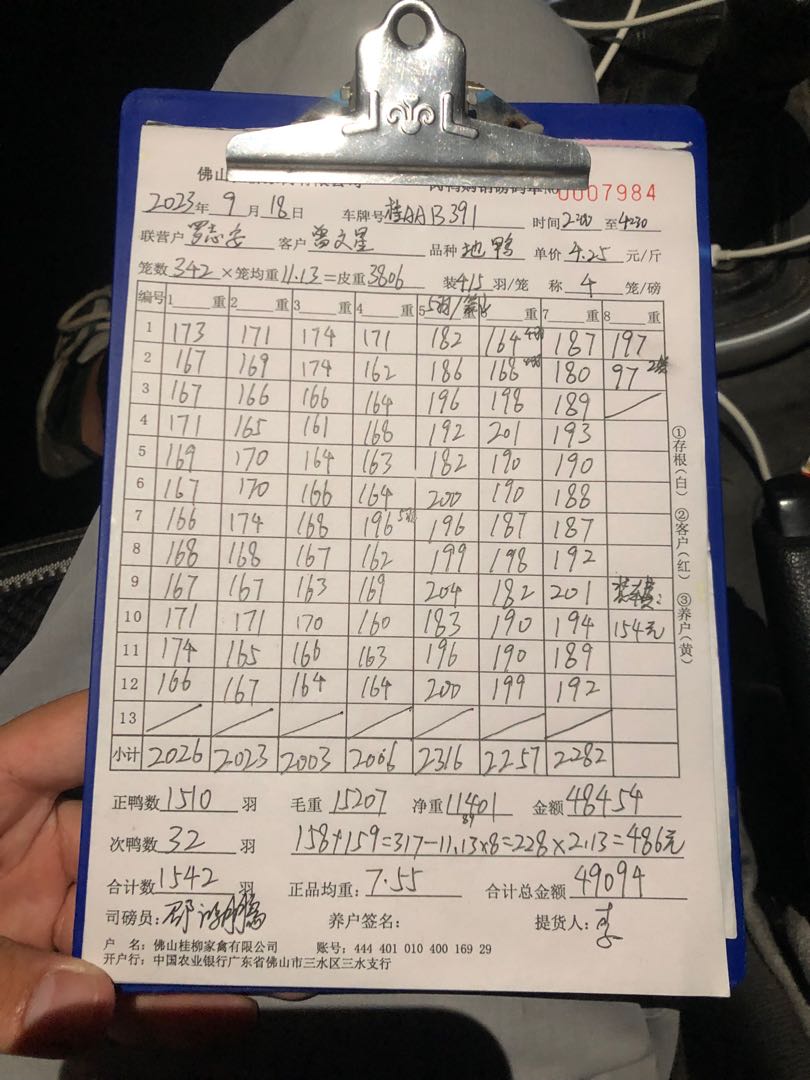 佛山
0007984
2023年 9 月 18 日 车牌号 桂AAB391 时间 2:00 至 4:30
联营户 罗志安 客户 曾文星 品种 地鸭 单价 4.25 元/斤
笼数 342 ×笼均重 11.13 =皮重 3806 装 4.15 羽/笼 称 4 笼/磅
编号 1 重 2 重 3 重 4 重 5 重 6 重 7 重 8 重
1 173 171 174 171 182 164 187 197
2 167 169 174 162 186 168 180 97
3 167 166 166 164 196 198 189
4 171 165 161 168 192 201 193
5 169 170 164 163 182 190 190
6 167 170 166 164 200 190 188
7 166 174 168 196 196 187 187
8 168 168 167 162 199 198 192
9 167 167 163 169 204 182 201
10 171 171 170 160 183 190 194 154元
11 174 165 166 163 196 190 189
12 166 167 164 164 200 199 192
13
小计 2026 2023 2003 2006 2316 2257 2282
正鸭数 1510 羽 毛重 15207 净重 11401 金额 48454
次鸭数 32 羽 158+159=317-11.13×8=228×2.13=486元
合计数 1542 羽 正品均重: 7.55 合计总金额 49094
司磅员: 养户签名: 提货人: 李
户 名: 佛山桂柳家禽有限公司 账号: 444 401 010 400 169 29
开户行: 中国农业银行广东省佛山市三水区三水支行
①存根(白) ②客户(红) ③养户(黄)